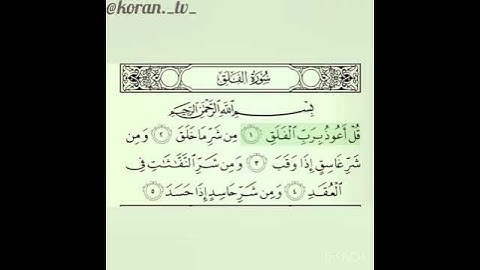 @koran._tv_
سُورَةُ الفَلَقِ
بِسْمِ اللَّهِ الرَّحْمَٰنِ الرَّحِيمِ
قُلْ أَعُوذُ بِرَبِّ الْفَلَقِ ١ مِن شَرِّ مَا خَلَقَ ٢ وَمِن
شَرِّ غَاسِقٍ إِذَا وَقَبَ ٣ وَمِن شَرِّ النَّفَّاثَاتِ فِي
الْعُقَدِ ٤ وَمِن شَرِّ حَاسِدٍ إِذَا حَسَدَ ٥